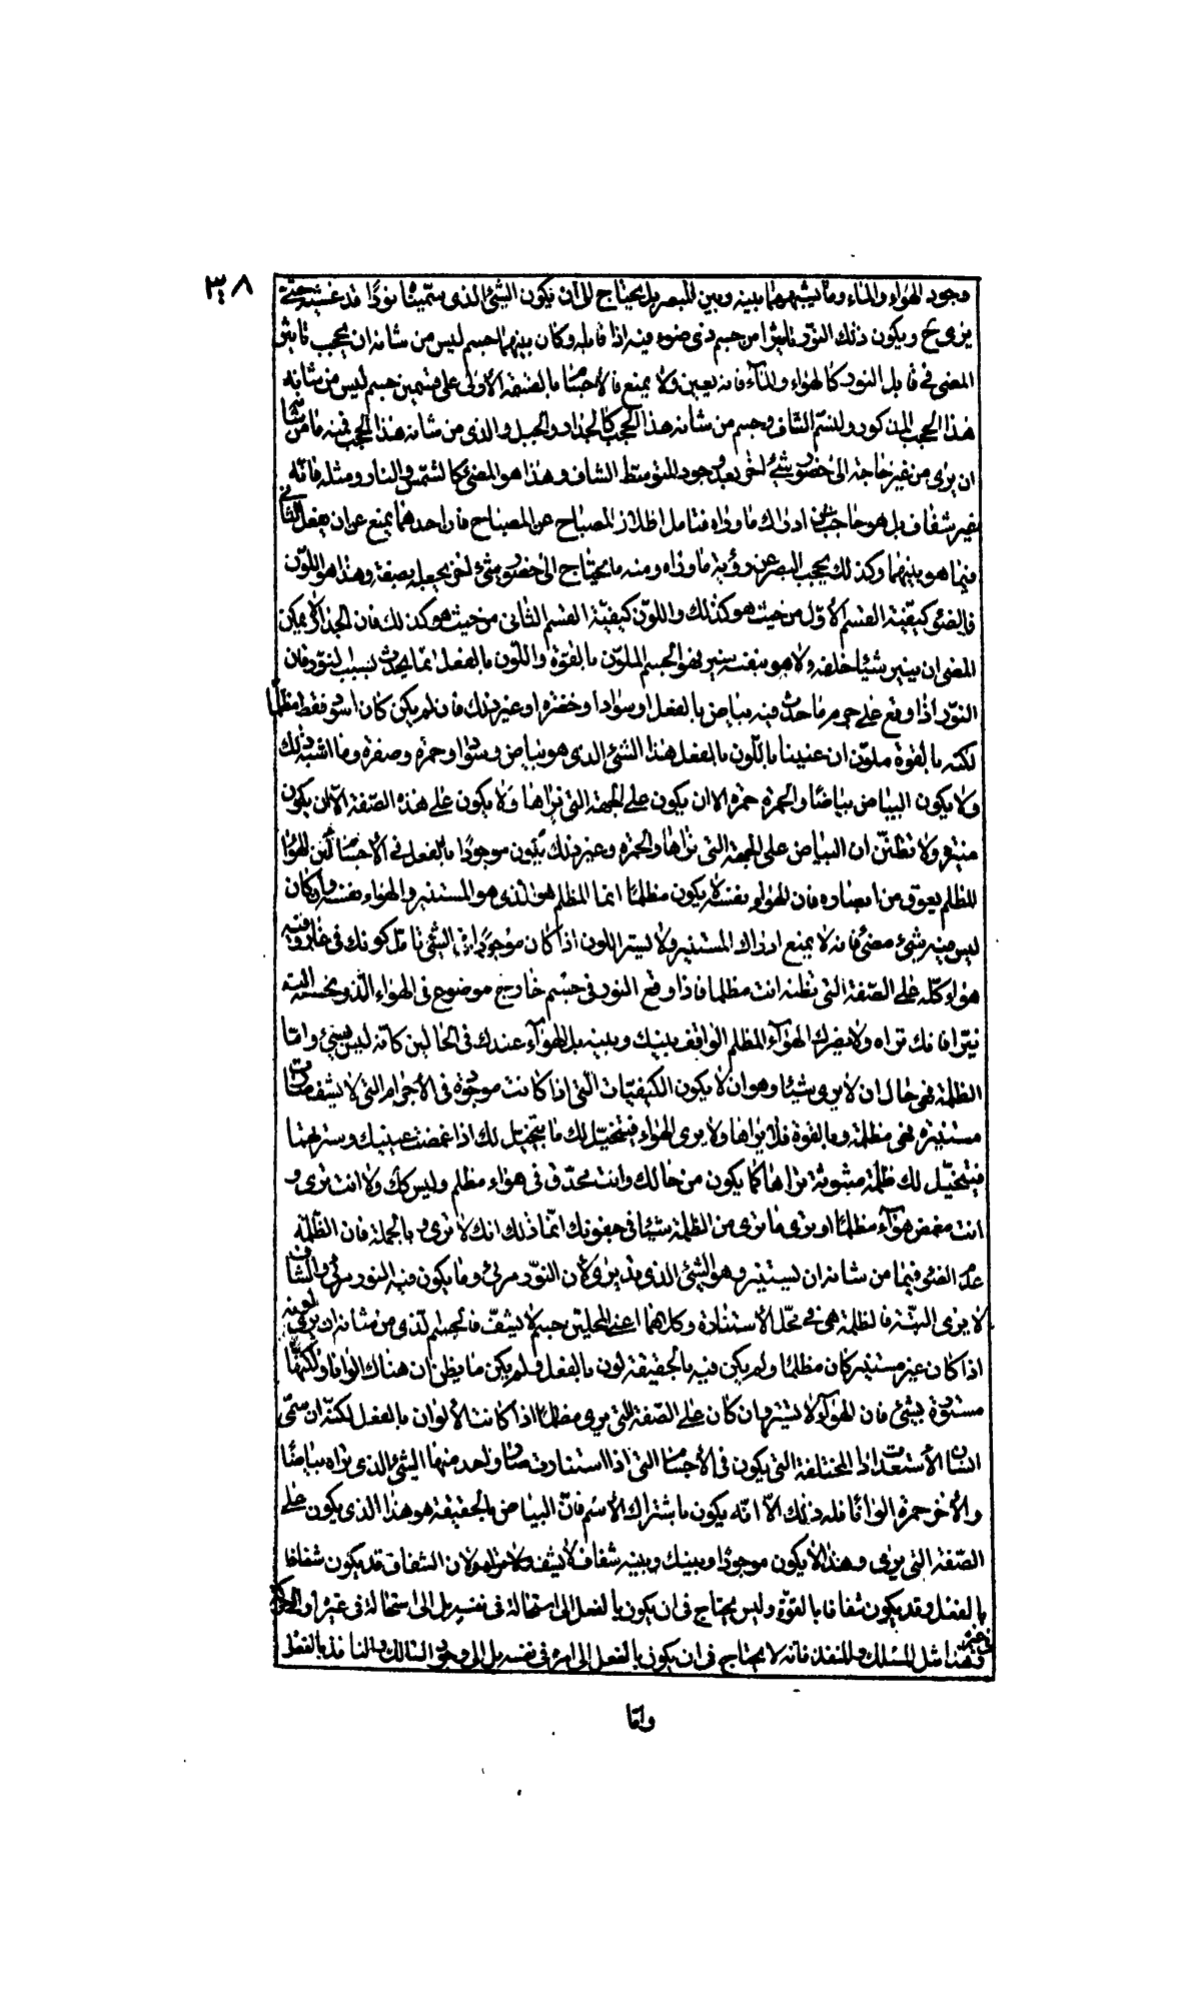 ٣٠٨
وجود الهواء والماء وما يشبههما بينه وبين المبصر بل يحتاج الى ان يكون الشئ الذى سميناه نورا قد غشيه حتى
يرى ح ويكون ذلك النور تاثيرا من جسم ذى ضوء فيه اذا قابله وكان بينهما جسم ليس من شانه ان يحجب تاثير
المضى فى قابل النور كالهواء والماء فانه يعين ولا يمنع فالاجسام بالقسمة الاولى على قسمين جسم ليس من شانه
هذا الحجب المذكور ولنسم الشاف وجسم من شانه هذا الحجب كالجدار والجبل والذى من شانه هذا الحجب فمنه ما من شانه
ان يرى من غير حاجة الى حضور شئ اخر بعد وجود المتوسط الشاف وهذا هو المضئ كالشمس والنار ومثله فانه
غير شفاف بل هو حاجب عن ادراك ماوراه فتامل اظلال المصباح عن المصباح فان احدهما يمنع عن ان يفعل الثانى
فيما هو بينهما وكذلك يحجب البصر عن رؤية ماوراه ومنه ما يحتاج الى حضور شئ اخر يجعله بصفة وهذا هو اللون
فالضئ كيفية القسم الاول من حيث هو كذلك واللون كيفية القسم الثانى من حيث هو كذلك فان الجدار لا يمكن
المضى ان ينير شيئا خلفه ولا هو بنفسه منير فهو الجسم الملون بالقوة واللون بالفعل انما يحدث بسبب النور فان
النور اذا وقع على جرم ما حدث فيه بياض بالفعل او سواد او خضرة او غير ذلك فان لم يكن كان اسود فقط مظلما
لكنه بالقوة ملون ان عنينا باللون بالفعل هذا الشئ الذى هو بياض وسواد وحمرة وصفرة وما اشبه ذلك
ولا يكون البياض بياضا والحمرة حمرة الا ان يكون على الجهة التى نراها ولا يكون على هذه الصفة الا ان يكون
منيرة ولا تظنن ان البياض على الجهة التى نراها والحمرة وغير ذلك يكون موجودا بالفعل فى الاجسام لكن الهواء
المظلم يعوق من ابصاره فان الهواء بنفسه لا يكون مظلما انما المظلم هو الذى هو المستنير والهواء بنفسه وان كان
ليس فيه شئ مضئ فانه لا يمنع ادراك المستنير ولا يستر اللون اذا كان موجودا فى الشئ تامل كونك فى غار وفيه
هواء كله على الصفة التى تظنه انت مظلما فاذا وقع النور فى جسم خارج موضوع فى الهواء الذى تحسبه
نيرا فانك تراه ولا يضرك الهواء المظلم الواقف بينك وبينه بل الهواء عندك فى الحالين كانه ليس بشئ واما
الظلمة فهى حال ان لا يرى شيئا وهو ان لا يكون الكيفيات التى اذا كانت موجودة فى الاجرام التى لا يشف صارت
مستنيرة فهى مظلمة وبالقوة فلا يراها ولا يرى الهواء فيتخيل لك ما يتخيل لك اذا غمضت عينيك وسترتهما
فيتخيل لك ظلمة مبثوثة تراها كما يكون من حالك وانت محدق فى هواء مظلم وليس كك ولا انت ترى و
انت مغمض هواء مظلما او ترى ما ترى من الظلمة شيئا فى جفونك انما ذلك انك لا ترى وبالجملة فان الظلمة
عدم الضئ فيما من شانه ان يستنير وهو الشئ الذى قد يرى لان النور مرئى وما يكون فيه النور مرئى والشاف
لا يرى البتة فالظلمة هى فى محل الاستنارة وكلاهما اعنى المحلين جسم لا يشف فالجسم الذى من شانه ان يرى لونه
اذا كان غير مستنير كان مظلما ولم يكن فيه بالحقيقة لون بالفعل ولم يكن ما يظن ان هناك الوانا ولكنها
مستورة بشئ فان الهواء لا يستر وان كان على الصفة التى يرى مظلما اذا كانت الالوان بالفعل لكنه ان سمى
انسان الاستعدادات المختلفة التى يكون فى الاجسام التى اذا استنارت صار واحد منها الشئ الذى تراه بياضا
والاخر حمرة الوانا فله ذلك الا انه يكون باشتراك الاسم فان البياض بالحقيقة هو هذا الذى يكون على
الصفة التى يرى وهذا لا يكون موجودا وبينك وبينه شفاف لا يشف ولا تراه ولان الشفاف قد يكون شفافا
بالفعل وقد يكون شفافا بالقوة وليس يحتاج فى ان يكون بالفعل الى استحالة فى نفسه بل الى استحالة فى غيره او الى حركة
فى غيره وهذا مثل المسلك والمنفذ فانه لا يحتاج فى ان يكون بالفعل الى امر فى نفسه بل الى وجود السالك والنافذ بالفعل
واما